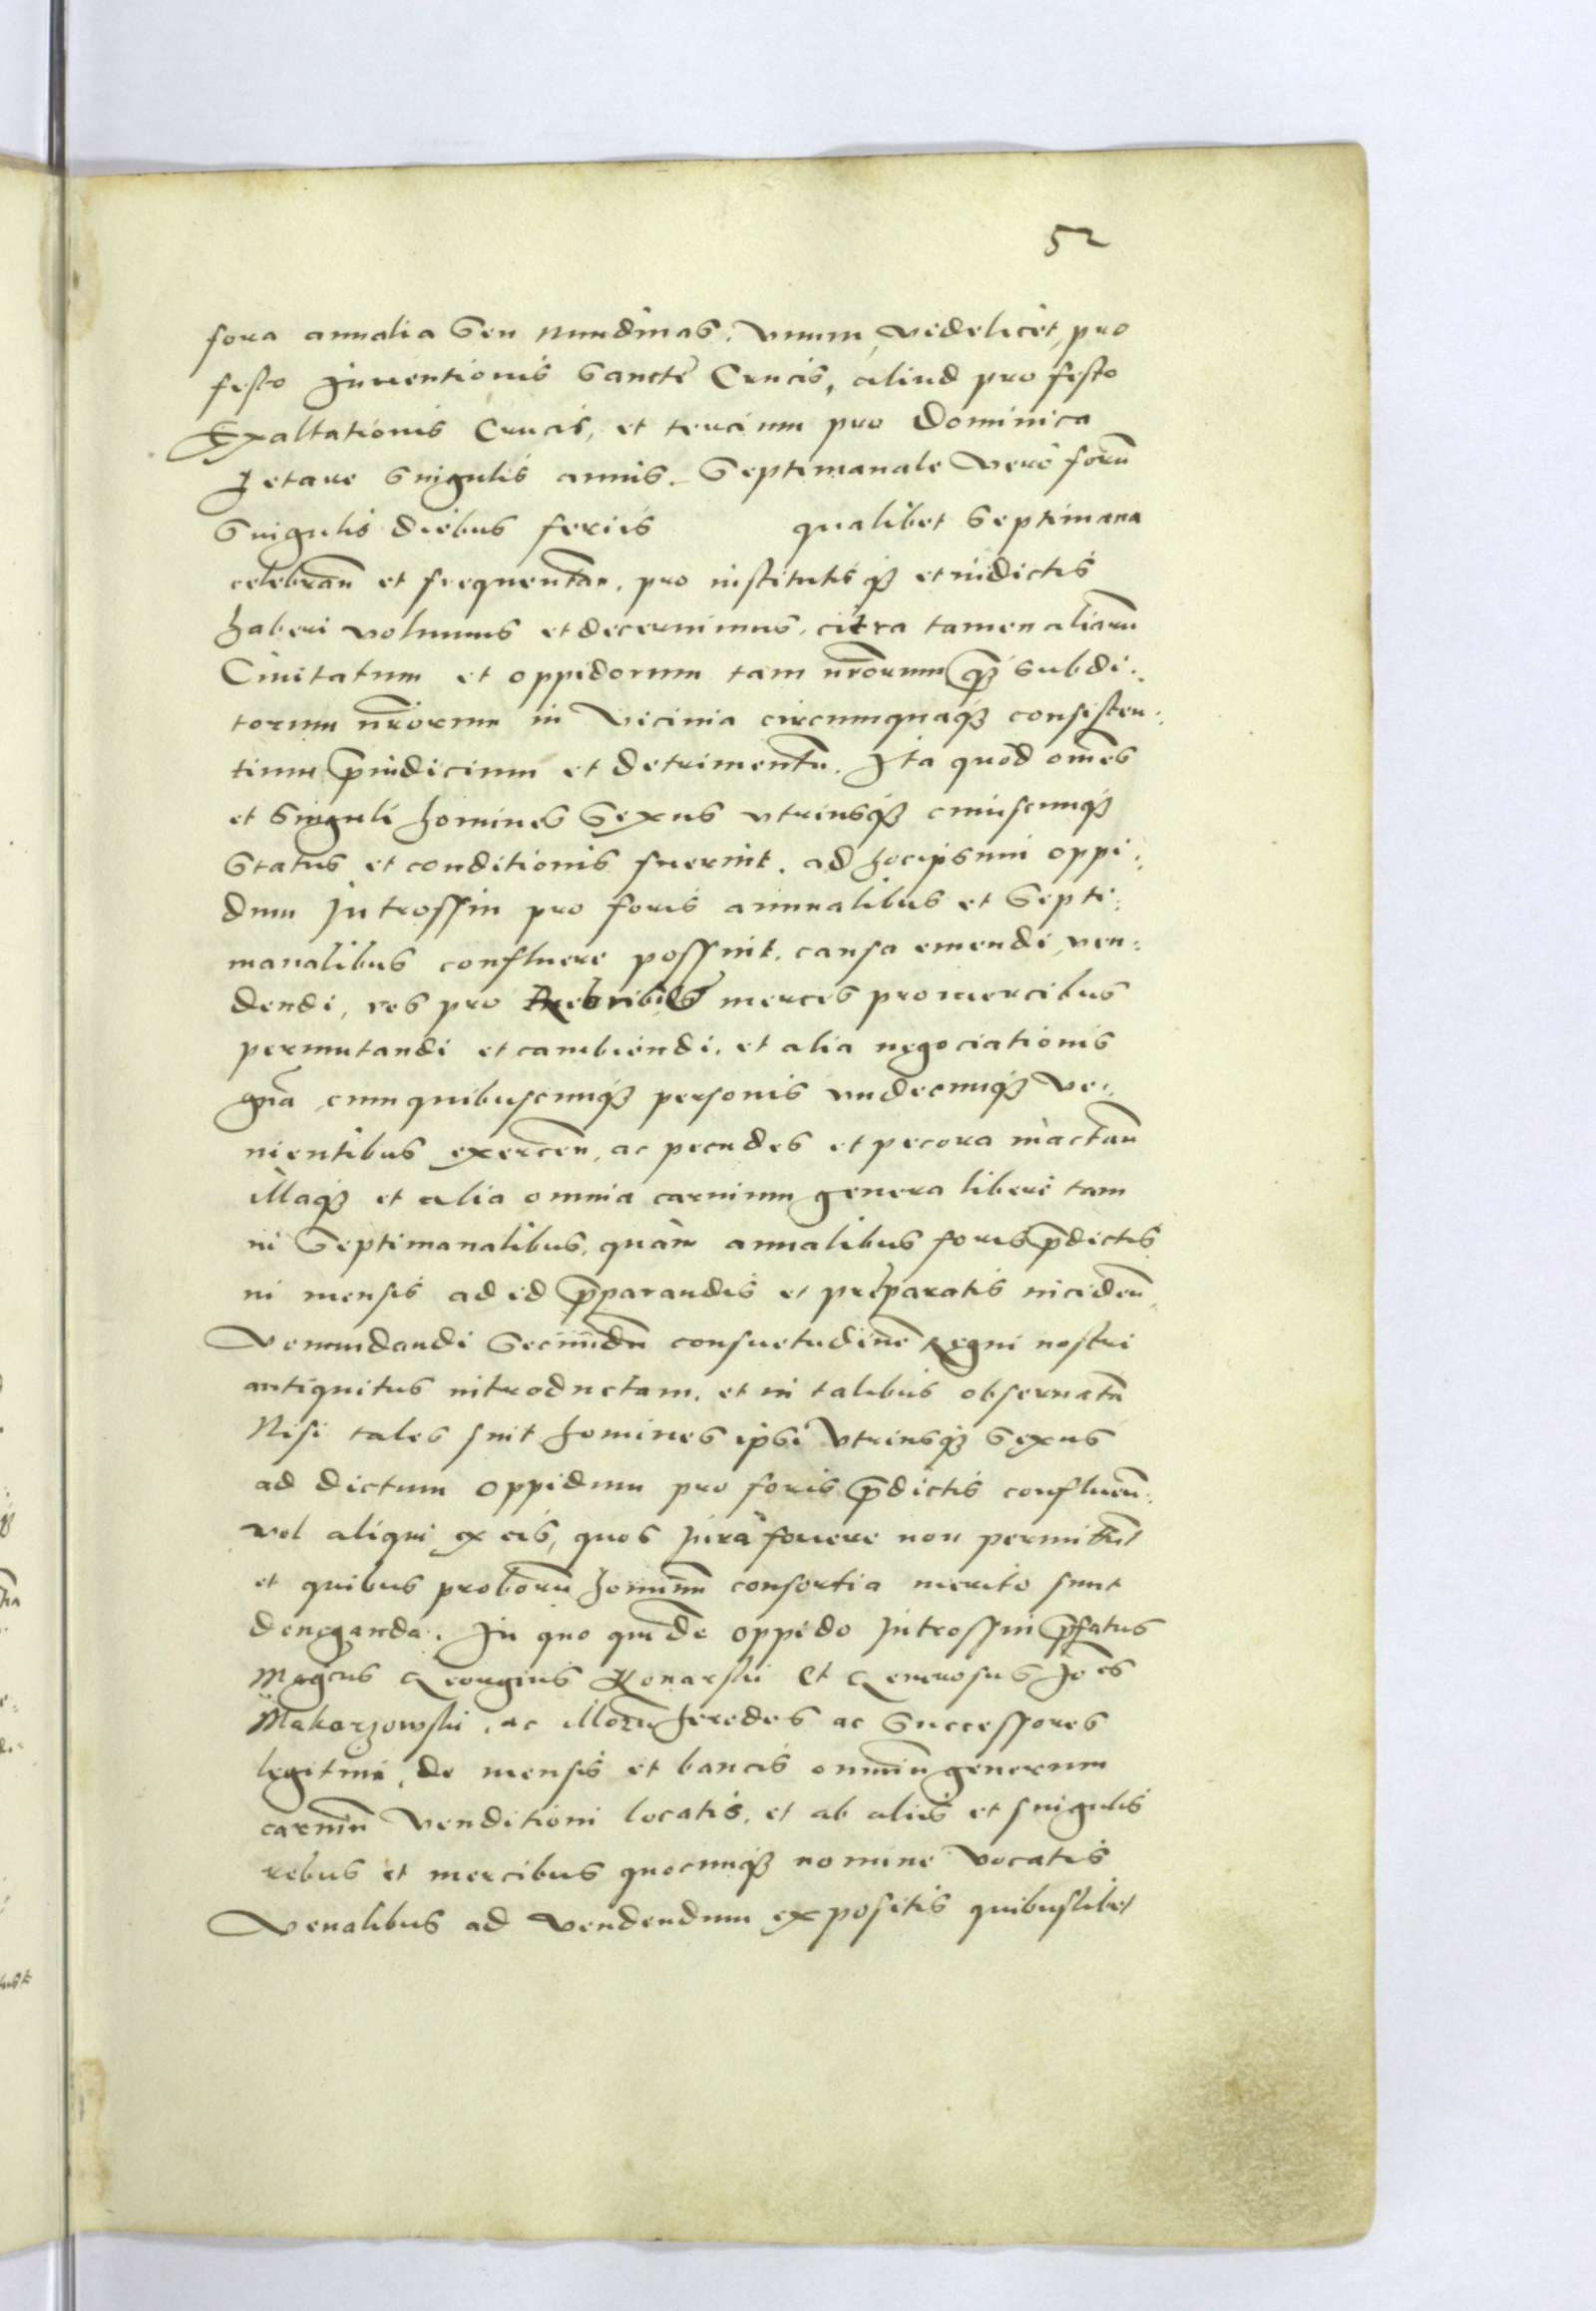 52
fora annalia Seu nundinas. Vnum, videlicet, pro
festo Inventionis Sanctę Crucis, aliud pro festo
Exaltationis Crucis, et tercium pro Dominica
Letare Singulis annis. Septimanale vero forũ
Singulis diebus feriis qualibet Septimana
celebrañ et frequentañ, pro institutisq̃ et indictis
haberi volumus et decernimus, citra tamen aliarũ
Ciuitatum et oppidorum tam nrõrum q̃ subdi:
torum nrõrum in vicinia circumquaq̃ consisten:
tium p̃iudicium et detrimentũ. Ita quod om̃es
et Singuli homines Sexus vtriusq̃ cuiuscunq̃
Status et conditionis fuerint, ad hocipsum oppi:
dum Jutrossin pro foris annualibus et Septi:
manalibus confluere possint, causa emendi, ven:
dendi, res pro rebus merces pro mercibus
permutandi et cambiendi, et alia negociationis
gñа cum quibuscunq̃ personis vndecunq̃ ve:
nientibus exerceñ, ac pecudes et pecora mactañ
illaq̃ et alia omnia carnium genera liberè tam
in Septimanalibus, quàm annalibus foris p̃dictis
in mensis ad id p̃parandis et pręparatis incideñ,
Venundandi Secundũ consuetudinẽ Regni nostri
antiquitus introductam, et in talibus obseruatã
Nisi tales sint homines ipsi Vtriusq̃ Sexus
ad dictum oppidum pro foris p̃dictis confluẽn:
vel aliqui ex eis, quos jura fouere non permittũt
et quibus proborũ hominũ consortia merito sunt
deneganda. In quo quidẽ oppido Jutrossin p̃fatus
Magcus Georgius Konarski et Generosus Joẽs
Makorzowski, ac illorũ heredes ac Successores
legitimi, de mensis et bancis omniũ generum
carniũ venditioni locatis, et ab aliis et singulis
rebus et mercibus quocunq̃ nomine vocatis
Venalibus ad vendendum expositis quibuslibet